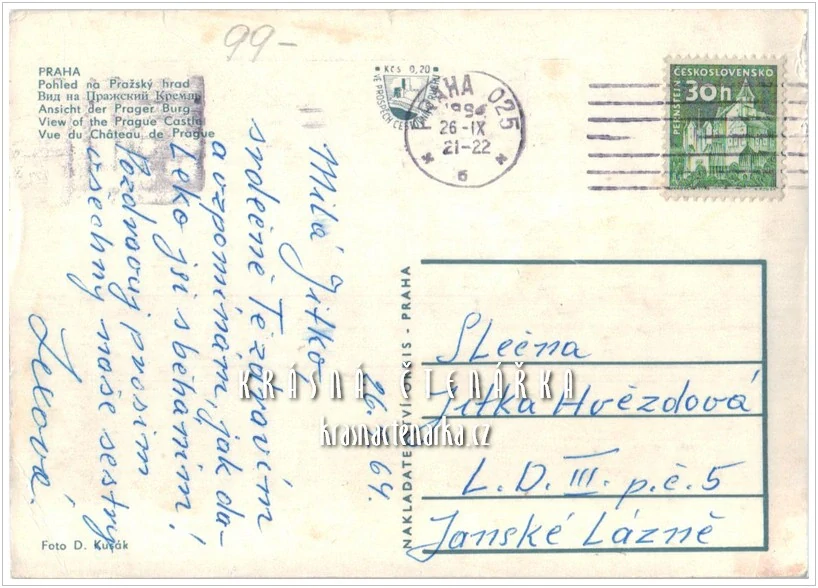 99-
PRAHA
Pohled na Pražský hrad
Вид на Пражский Кремль
Ansicht der Prager Burg
View of the Prague Castle
Vue du Château de Prague
Kčs 0,20
PRAHA 025
26.-IX
21-22
6
ČESKOSLOVENSKO
30h
PERNŠTEJN
Milá Jitko!
26. 64.
srdečně Tě zdravím
a vzpomínám, jak da-
leko jsi s běháním!
Pozdravuj prosím
všechny naše sestry
NAKLADATELSTVÍ ORBIS - PRAHA
Slečna
Jitka Hvězdová
L. D. III. p. č. 5
Janské Lázně
KRÁSNÁ ČTENÁŘKA
krasnactenarka.cz
Foto D. Kusák